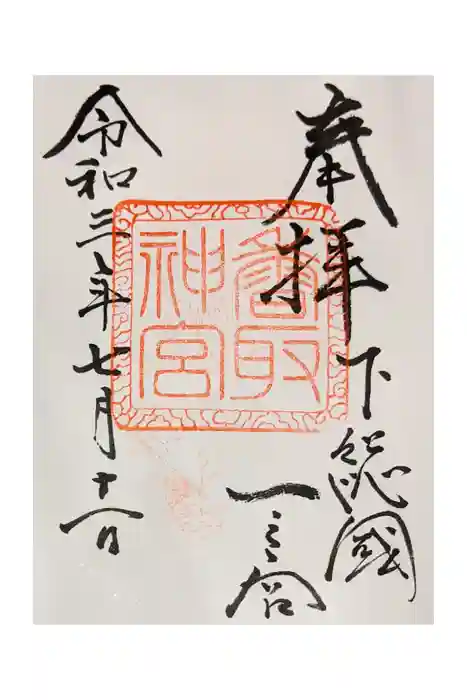 奉拝
下総國
一之宮
香取
神宮
令和三年七月十八日